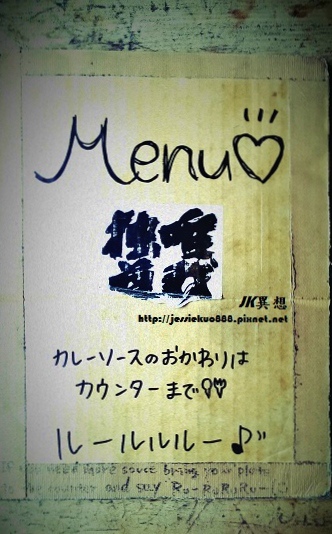 Menu♡
唯我
独尊
JK異想
http://jessiekuo888.pixnet.net
カレーソースのおかわりは
カウンターまで♡♡
ルールルルー♪
If you need more sauce bring your plate
to the counter and say Ru-RuRuRu-